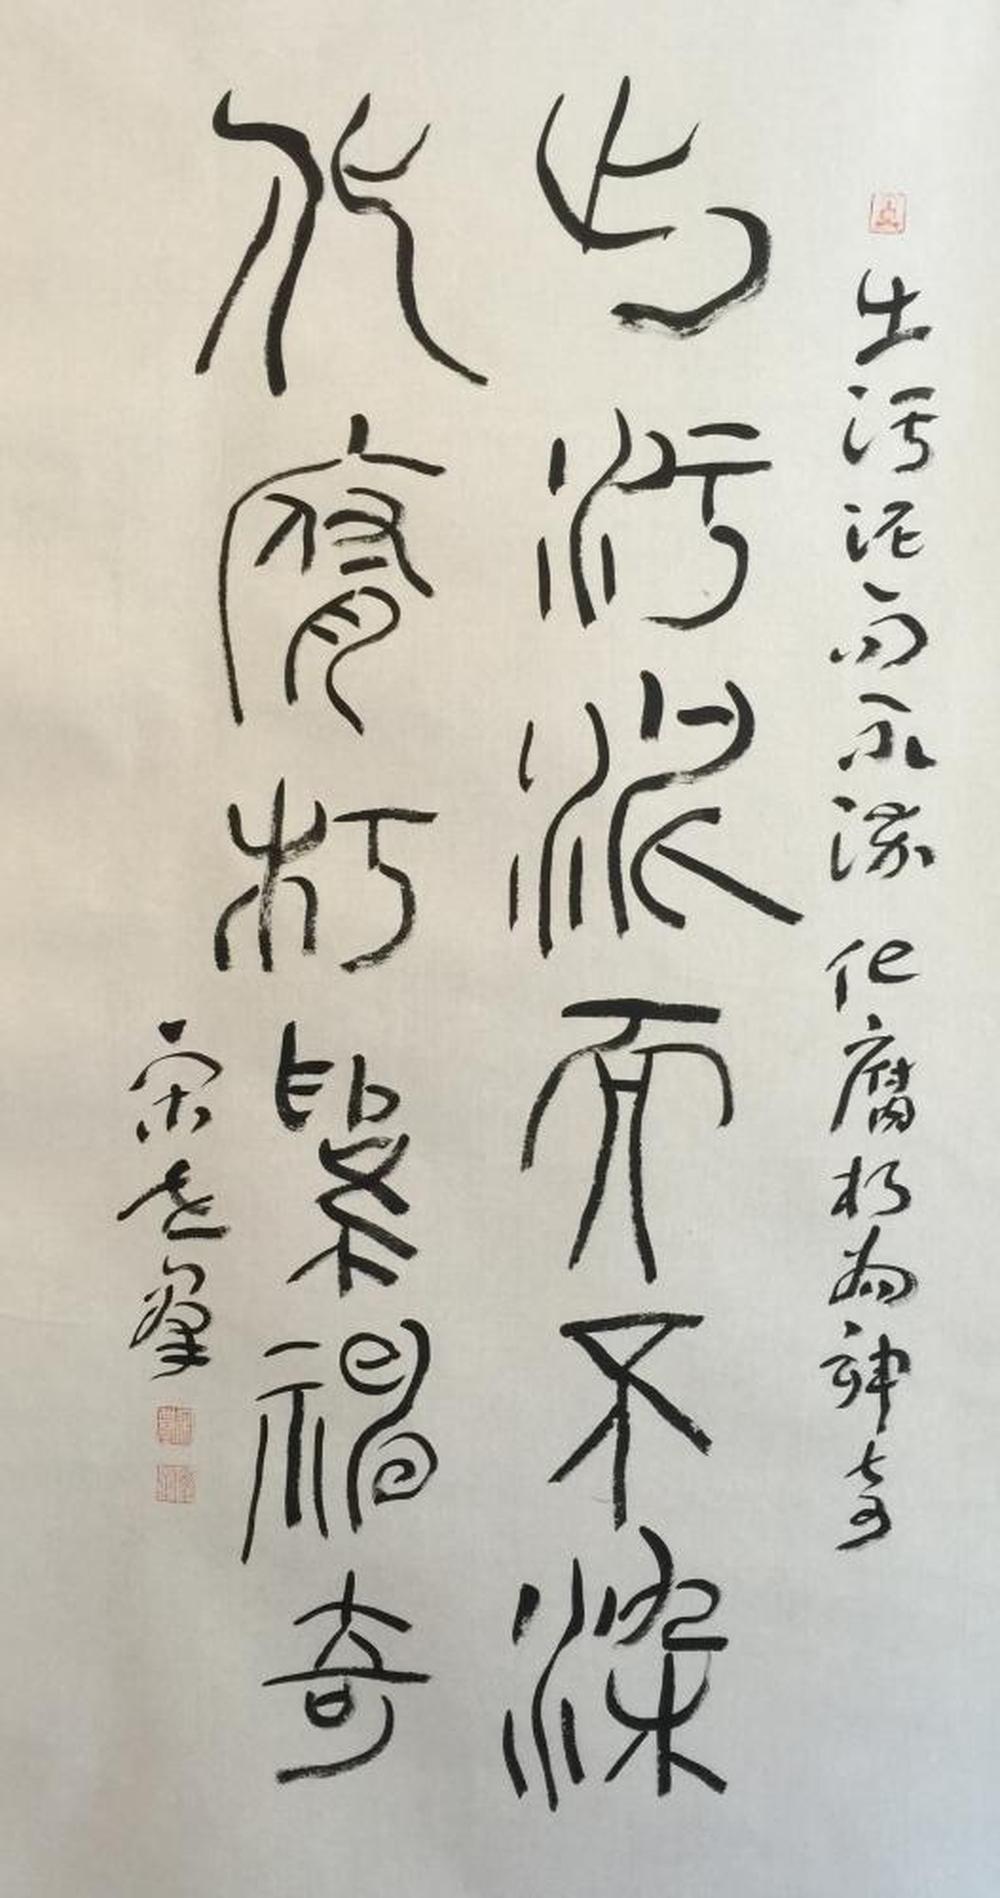 出污泥而不染 化腐朽為神奇
出污泥而不染
化腐朽為神奇
宋